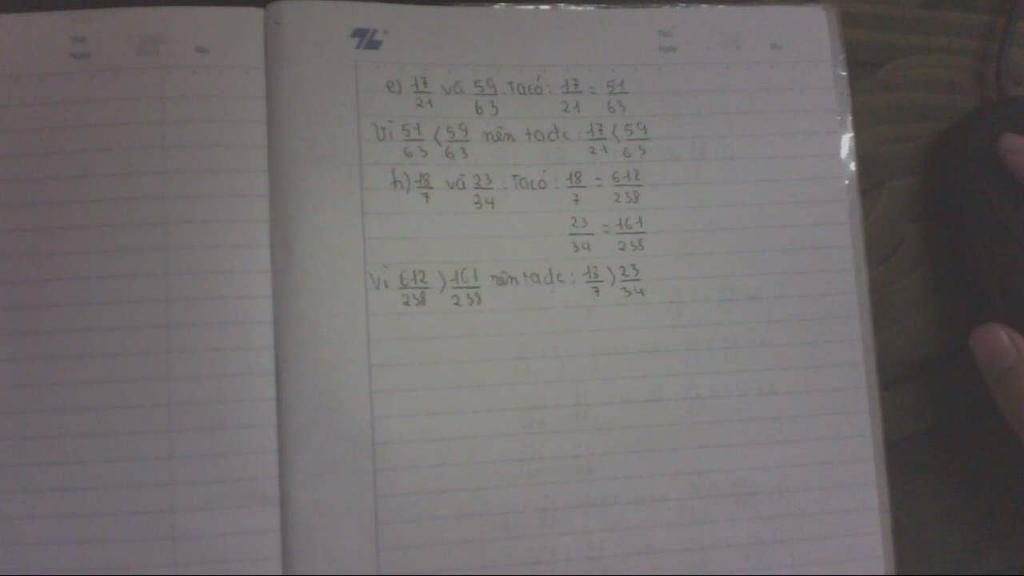 e) 17/21 và 59/63. Ta có: 17/21 = 51/63
Vì 51/63 < 59/63 nên ta đc: 17/21 < 59/63
h) 18/7 và 23/34. Ta có: 18/7 = 612/238
23/34 = 161/238
Vì 612/238 > 161/238 nên ta đc: 18/7 > 23/34